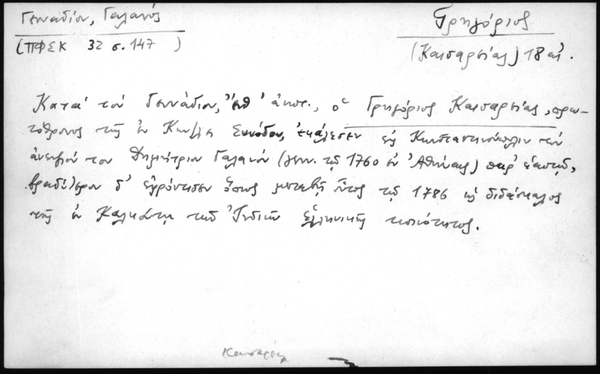 Γενναδίου, Γαλανός
(ΠΦΣΚ 32 σ. 147)
Γρηγόριος
(Καισαρείας) 18 αἰ.
Κατὰ τὸν Γεννάδιον, ὁ Γρηγόριος Καισαρείας, πρω-
τόθρονος τῆς ἐν Κων/λει Συνόδου, ἐκάλεσεν εἰς Κωνσταντινούπολιν τὸν
ἀνεψιόν του Δημήτριον Γαλανόν (γενν. τῷ 1760 ἐν Ἀθήναις) παρ' ἑαυτῷ,
βραδύτερον δ' ἐφρόντισεν ὅπως μεταβῇ οὗτος τῷ 1786 ὡς διδάσκαλος
τῆς ἐν Καλκούτῃ τῶν Ἰνδιῶν ἑλληνικῆς κοινότητος.